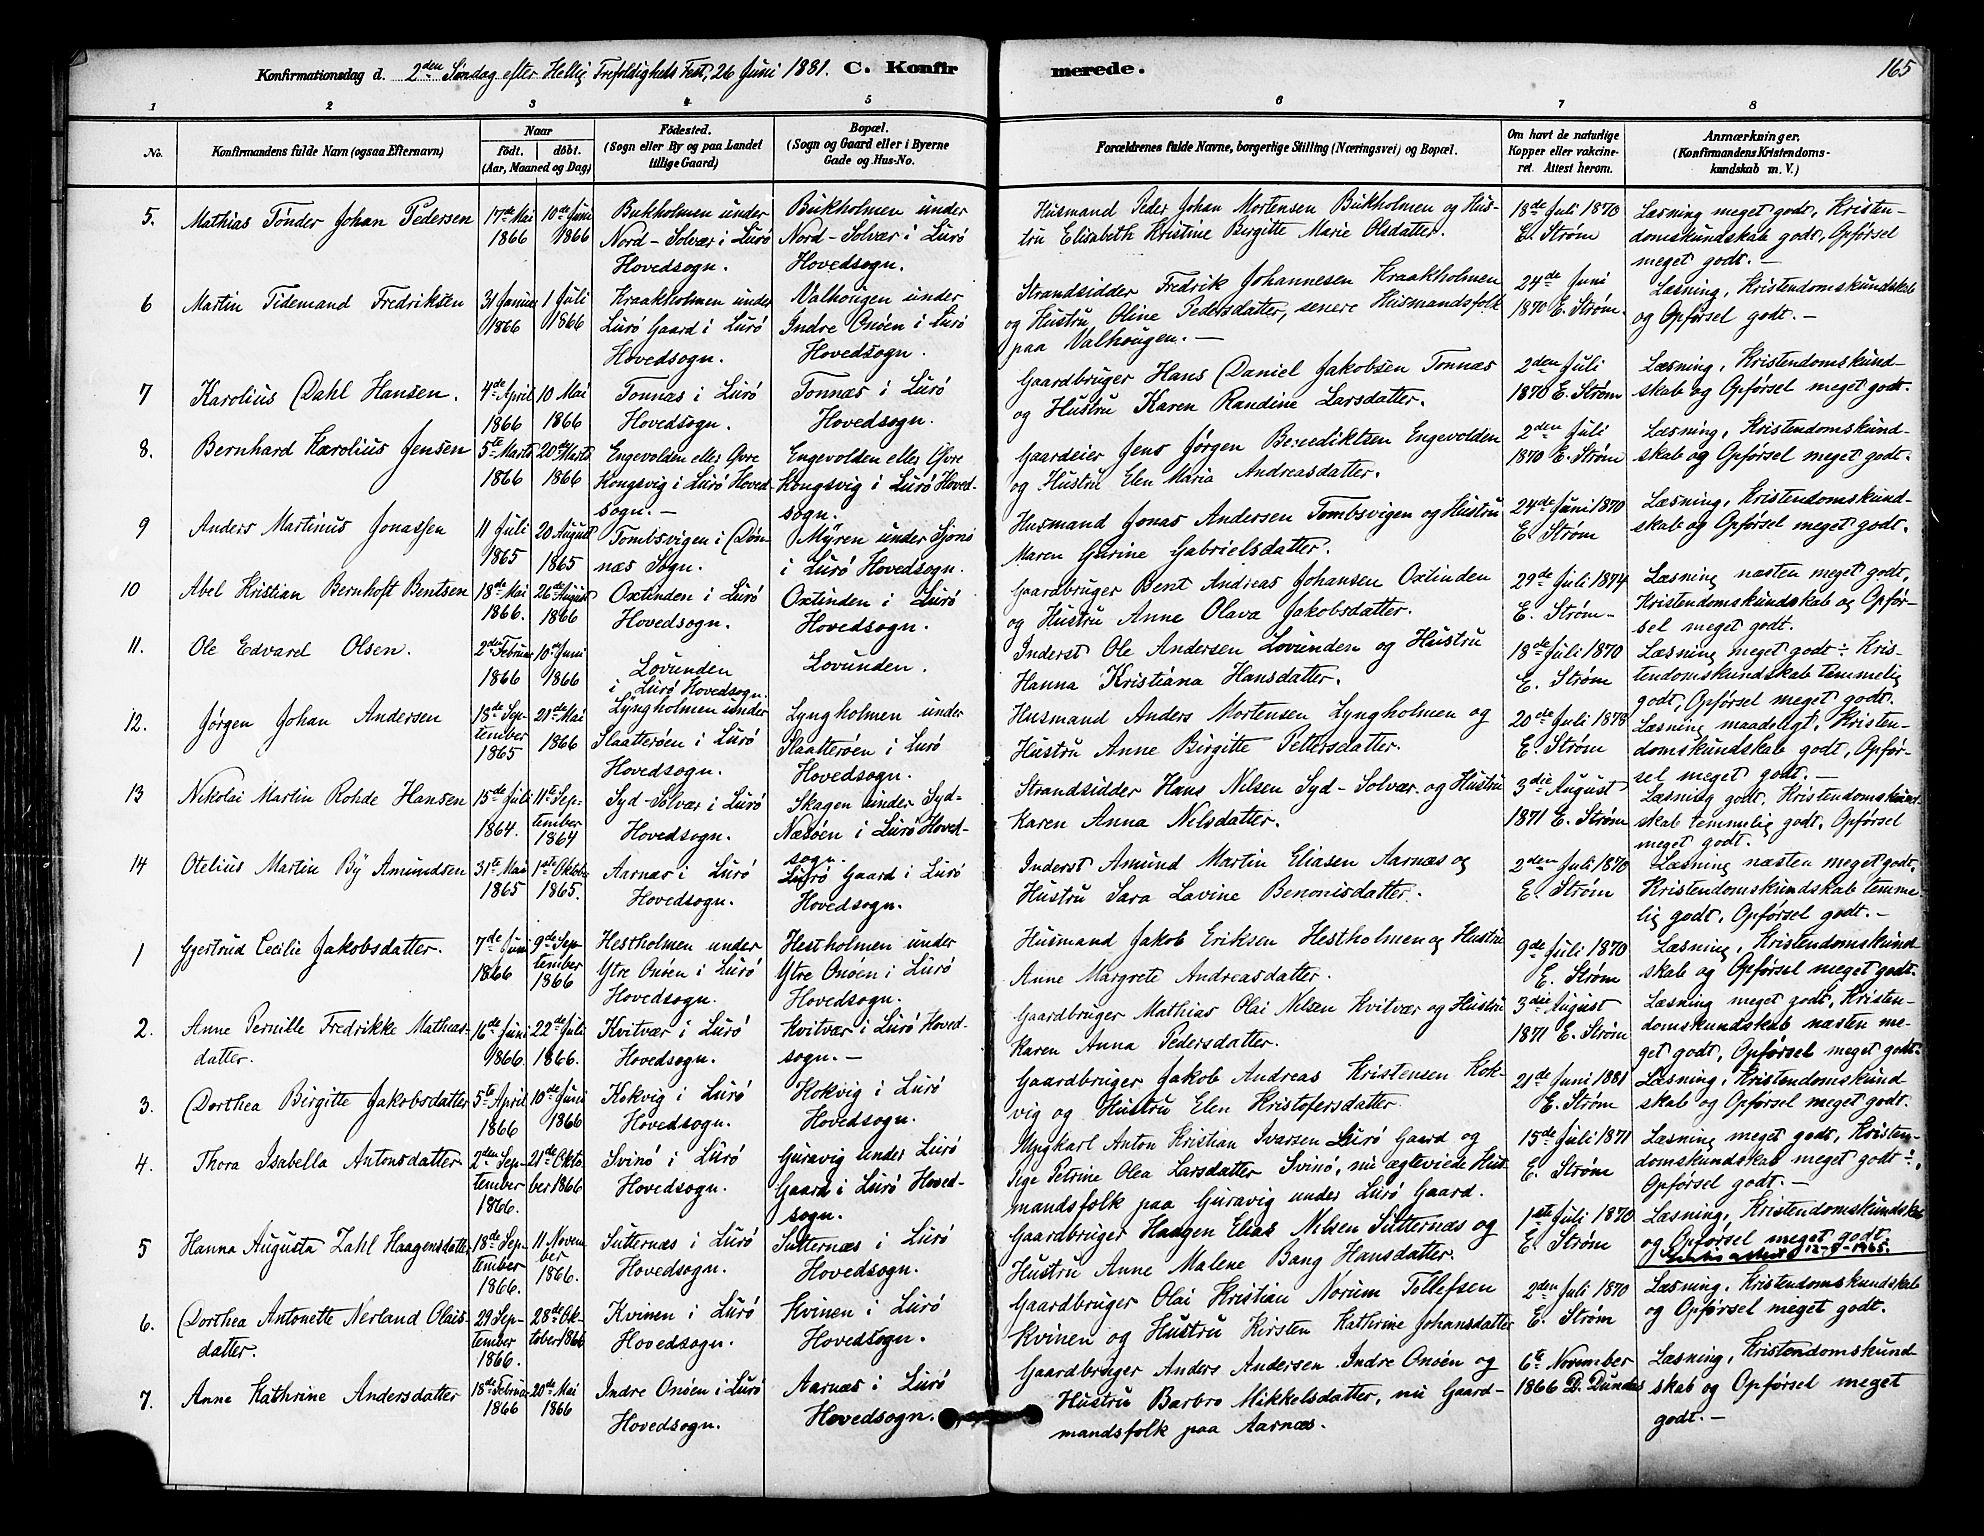 Konfirmationsdag d. 2den Søndag efter Hellig Trefoldigheds Fest, 26 Juni 1881. C. Konfirmerede. 165
1 2 3 4 5 6 7 8
No.
Konfirmandens fulde Navn (ogsaa Efternavn)
Naar
født. døbt.
(Aar, Maaned og Dag)
Fødested.
(Sogn eller By og paa Landet
tillige Gaard)
Bopæl.
(Sogn og Gaard eller i Byerne
Gade og Hus-No.
Forældrenes fulde Navne, borgerlige Stilling (Næringsvei) og Bopæl.
Om havt de naturlige
Kopper eller vakcine-
ret. Attest herom.
Anmærkninger.
(Konfirmandens Kristendoms-
kundskab m. V.)
5. Mathias Tønder Johan Pedersen
17de Mai
1866
10de Juni
1866
Bukholmen under
Nord-Solvær i Lurö
Hovedsogn.
Bukholmen under
Nord-Solvær i Lurö
Hovedsogn.
Husmand Peder Johan Mortensen Bukholmen og Hus-
tru Elisabeth Kristine Birgitte Marie Olsdatter.
18de Juli 1870
E. Strøm
Læsning meget godt, Kristen-
domskundskab godt, Opførsel
meget godt. —
6 Martin Tidemand Fredriksen
31 Januar
1866
1 Juli
1866
Kraakholmen under
Lurö Gaard i Lurö
Hovedsogn.
Valhougen under
Indre Onöen i Lurö
Hovedsogn.
Strandsidder Fredrik Johannesen Kraakholmen
og Hustru Oline Pedersdatter, senere Husmandsfolk
paa Valhougen. —
24de Juni
1870 E. Strøm.
Læsning, Kristendomskundskab
og Opførsel godt. —
7 Karolius Dahl Hansen.
4de April
1866
10 Mai
1866
Tonnæs i Lurö
Hovedsogn.
Tonnæs i Lurö
Hovedsogn.
Gaardbruger Hans Daniel Jakobsen Tonnæs
og Hustru Karen Randine Larsdatter.
2den Juli
1870 E. Strøm
Læsning, Kristendomskund-
skab og Opførsel meget godt.
8. Bernhard Karolius Jensen
5te Marts
1866
20de Marts
1866
Engevolden eller Øvre
Kongsvig i Lurö Hoved-
sogn. —
Engevolden eller Øvre
Kongsvig i Lurö Hoved-
sogn.
Gaardeier Jens Jørgen Benediktsen Engevolden
og Hustru Elen Maria Andreasdatter.
2den Juli
1870 E. Strøm
Læsning, Kristendomskund-
skab og Opførsel meget godt.
9 Anders Martinus Jonassen
11 Juli
1865
20 August
1865
Tombsvigen i Døn-
næs Sogn.
Myren under Sjona
i Lurö Hovedsogn.
Husmand Jonas Andersen Tombsvigen og Hustru
Maren Gurine Gabrielsdatter.
24de Juni 1870
E. Strøm
Læsning, Kristendomskund-
skab og Opførsel meget godt.
10 Abel Kristian Bernhoft Bentsen
18de Mai
1866.
26de August
1866
Oxtinden i Lurö
Hovedsogn.
Oxtinden i Lurö
Hovedsogn.
Gaardbruger Bent Andreas Johansen Oxtinden
og Hustru Anne Olava Jakobsdatter.
29de Juli 1874
E. Strøm
Læsning næsten meget godt,
Kristendomskundskab og Opfør-
sel meget godt.
11. Ole Edvard Olsen.
2den Februar
1866
10de Juni
1866
Lovunden
i Lurö Hovedsogn.
Lovunden.
Inderst Ole Andersen Lovunden og Hustru
Hanna Kristiana Hansdatter.
18de Juli 1870
E. Strøm
Læsning meget godt ÷ Kris-
tendomskundskab temmelig
godt, Opførsel meget godt.
12. Jørgen Johan Andersen
18de Sep-
tember
1865
21de Mai
1866
Lyngholmen under
Slaatteröen i Lurö
Hovedsogn.
Lyngholmen under
Slaatteröen i Lurö
Hovedsogn.
Husmand Anders Mortensen Lyngholmen og
Hustru Anne Birgitte Pettersdatter.
20de Juli 1878
E. Strøm
Læsning maadeligt, Kristen-
domskundskab godt, Opfør-
sel meget godt. —
13 Nikolai Martin Rohde Hansen
15de Juli
1864.
11te Sep-
tember
1864
Syd-Solvær i Lurö
Hovedsogn.
Skagen under Syd-
Næsöen i Lurö Hoved-
sogn.
Strandsidder Hans Nilsen Syd-Solvær og Hustru
Karen Anna Nilsdatter.
3die August
1871 E. Strøm
Læsning godt, Kristendomskund-
skab temmelig godt, Opførsel
meget godt.
14 Otelius Martin By Amundsen
31te Mai
1865
1ste Oktober
1865.
Aarnæs i Lurö
Hovedsogn.
Lurö Gaard i Lurö
Hovedsogn.
Inderst Amund Martin Eliasen Aarnæs og
Hustru Sara Lavine Benonisdatter.
2den Juli 1870
E. Strøm
Læsning næsten meget godt.
Kristendomskundskab temme-
lig godt, Opførsel godt. —
1 Gjertrud Cecilie Jakobsdatter.
7de Juni
1866
9de Sep-
tember
1866
Hestholmen under
Ytre Onöen i Lurö
Hovedsogn.
Hestholmen under
Ytre Onöen i Lurö
Hovedsogn.
Husmand Jakob Eriksen Hestholmen og Hustru
Anne Margrete Andreasdatter.
9de Juli 1870
E. Strøm
Læsning, Kristendomskund-
skab og Opførsel meget godt.
2. Anne Pernille Fredrikke Mathias-
datter.
16de Juni
1866.
22de Juli
1866.
Kvitvær i Lurö
Hovedsogn.
Kvitvær i Lurö Hoved-
sogn. —
Gaardbruger Mathias Olai Nilsen Kvitvær og Hustru
Karen Anna Pedersdatter.
3die August
1871 E. Strøm
Læsning meget godt, Kristen-
domskundskab næsten me-
get godt, Opførsel meget godt.
3. Dorthea Birgitte Jakobsdatter
5te April
1866
10de Juni
1866
Kokvig i Lurö
Hovedsogn.
Kokvig i Lurö
Hovedsogn.
Gaardbruger Jakob Andreas Kristensen Kok-
vig og Hustru Elen Kristofersdatter.
21de Juni 1881
E. Strøm
Læsning, Kristendomskund-
skab og Opførsel meget godt.
4. Thora Isabella Antonsdatter
2den Sep-
tember
1866.
21de Okto-
ber 1866
Svinö i Lurö
Hovedsogn.
Guravig under Lurö
Gaard i Lurö Hoved-
sogn.
Ungkarl Anton Kristian Ivarsen Lurö Gaard og
Pige Petrine Olea Larsdatter Svinö, nu ægteviede Hus-
mandsfolk paa Guravig under Lurö Gaard.
15de Juli 1871
E. Strøm
Læsning meget godt, Kristen-
domskundskab meget godt ÷,
Opførsel godt. —
5 Hanna Augusta Zahl Haagensdatter
18de Sep-
tember
1866.
11 Novem-
ber
1866.
Sutternæs i Lurö
Hovedsogn.
Sutternæs i Lurö
Hovedsogn.
Gaardbruger Haagen Elias Nilsen Sutternæs og
Hustru Anne Malene Bang Hansdatter.
1ste Juli 1870
E. Strøm
Læsning, Kristendomskundskab
og Opførsel meget godt.
12-7-1965.
6. Dorthea Antonette Nerland Olais-
datter.
29 Sep-
tember
1866.
28de Ok-
tober 1866
Kvinen i Lurö
Hovedsogn.
Kvinen i Lurö
Hovedsogn.
Gaardbruger Olai Kristian Norum Tollefsen
Kvinen og Hustru Kirsten Kathrine Johansdatter
2den Juli 1870
E. Strøm
Læsning, Kristendomskundskab
og Opførsel meget godt.
7. Anne Kathrine Andersdatter
18de Februar
1866
20de Mai
1866
Indre Onöen i Lurö
Hovedsogn.
Aarnæs i Lurö
Hovedsogn.
Gaardbruger Anders Andersen Indre Onöen og
Hustru Barbro Mikkelsdatter, nu Gaard-
mandsfolk paa Aarnæs.
6te November
1866 D. Dundas
Læsning, Kristendomskund
skab og Opførsel meget
godt. —